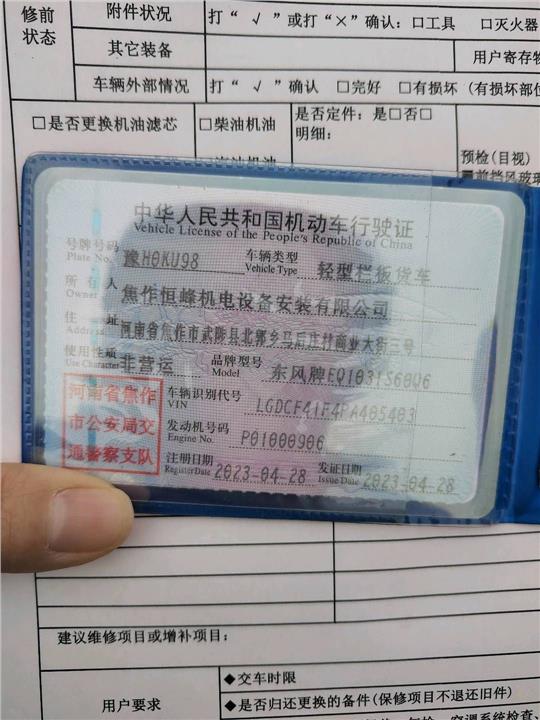 修前
状态
附件状况
打“ √ ”或打“×”确认：□工具 □灭火器
其它装备
用户寄存物
车辆外部情况
打“ √ ”确认 □完好 □有损坏（有损坏部位
□是否更换机油滤芯
□柴油机油
是否定件：是□否□
明细：
预检(目视)
中华人民共和国机动车行驶证
Vehicle License of the People's Republic of China
号牌号码 豫H0KU98 车辆类型 轻型栏板货车
Plate No. Vehicle Type
所有人 焦作恒峰机电设备安装有限公司
Owner
住址 河南省焦作市武陟县北郭乡马后庄村商业大街三号
Address
使用性质 非营运 品牌型号 东风牌EQ1031S60Q6
Use Character Model
河南省焦作
市公安局交
通警察支队
车辆识别代号 LGDCF41F4PA405403
VIN
发动机号码 P01000906
Engine No.
注册日期 2023-04-28 发证日期 2023-04-28
Register Date Issue Date
建议维修项目或增补项目：
用户要求
◆交车时限
◆是否归还更换的备件(保修项目不退还旧件)